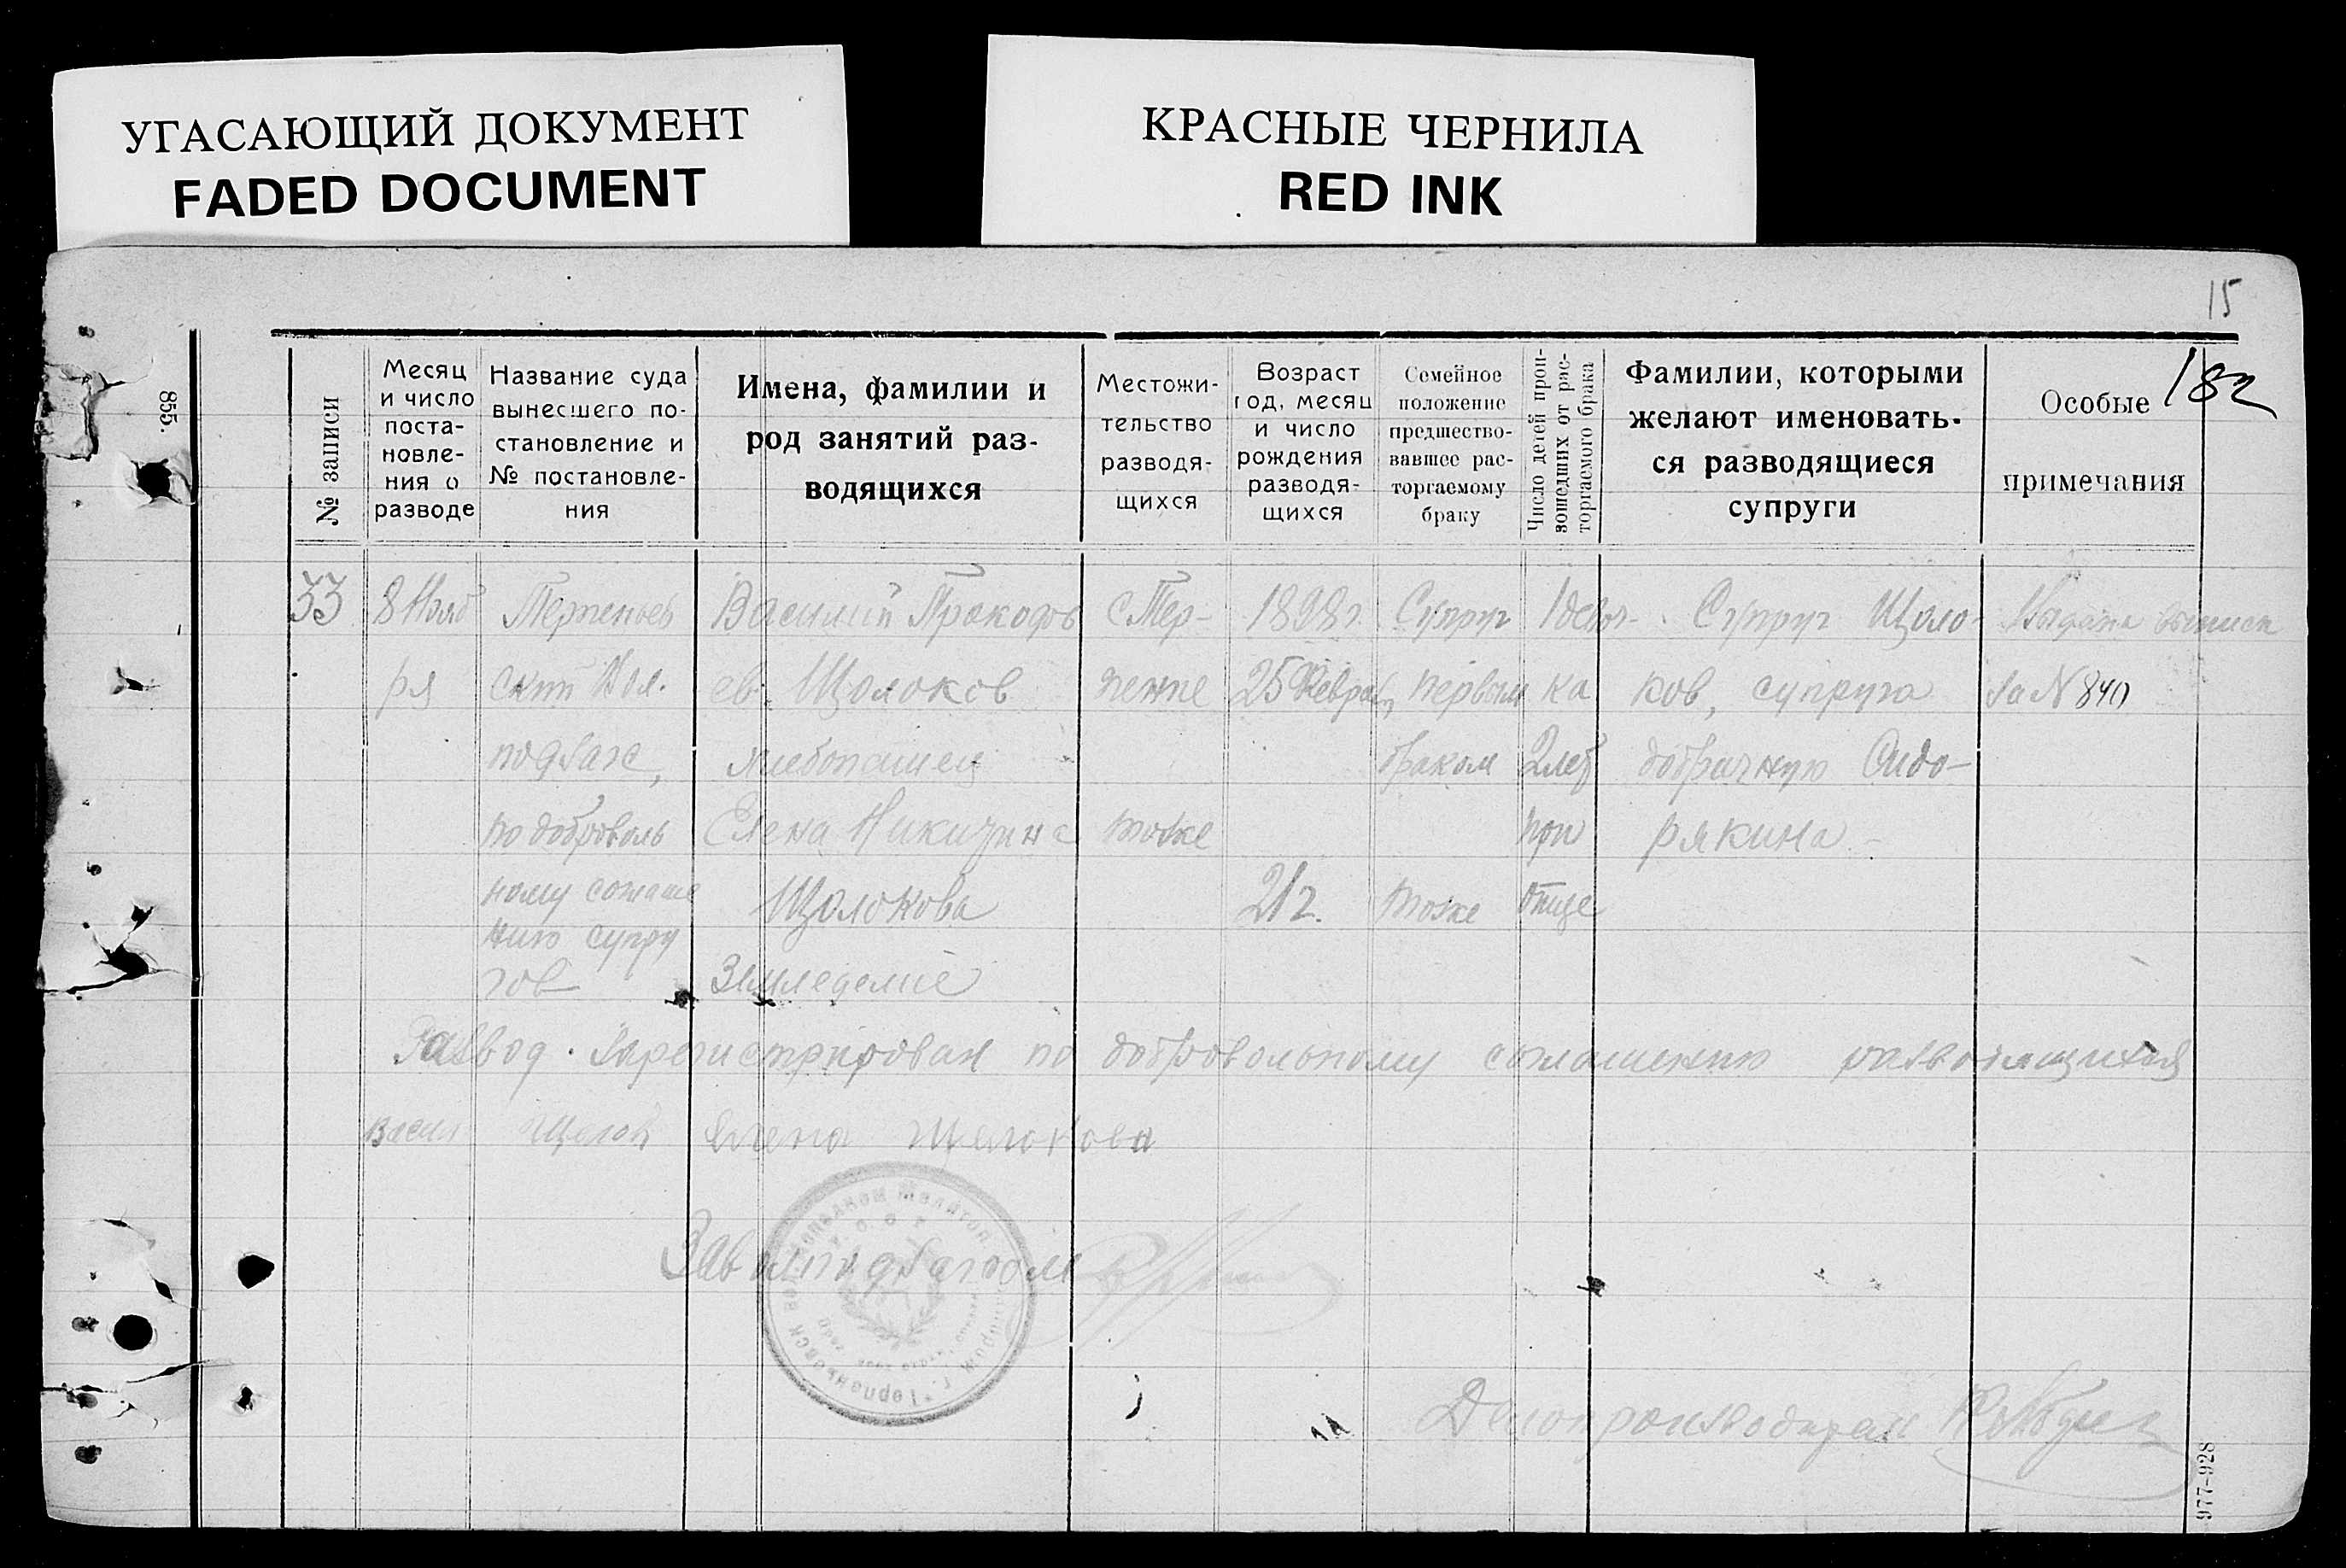 УГАСАЮЩИЙ ДОКУМЕНТ
FADED DOCUMENT
КРАСНЫЕ ЧЕРНИЛА
RED INK
15
182
855.
№ записи
Месяц
и число
поста-
новле-
ния о
разводе
Название суда
вынесшего по-
становление и
№ постановле-
ния
Имена, фамилии и
род занятий раз-
водящихся
Местожи-
тельство
разводя-
щихся
Возраст
год, месяц
и число
рождения
разводя-
щихся
Семейное
положение
предшество-
вавшее рас-
торгаемому
браку
Число детей прои-
зошедших от рас-
торгаемого брака
Фамилии, которыми
желают именовать-
ся разводящиеся
супруги
Особые
примечания
33
8 Нояб
ря
Терпеньев
ский Вол.
подзагс,
по доброволь
ному соглаше
нию супру
гов
Василий Прокофь
ев. Щолоков
хлебопашец
Елена Никитина
Щолокова
Земледелие
с Тер-
пение
тоже
1898 г.
25 Февраля
21 г.
Супруг
первым
браком
тоже
1 девоч-
ка
2 лет
при
отце
Супруг Щоло-
ков, супруга
добрачную Сидо-
рякина
Выдана выписка
за N 840
Развод. Зарегистрирован по добровольному соглашению разводящихся
Васил Щолок Елена Щелокова
Завволподзагсом
Делопроизводитель
977-928